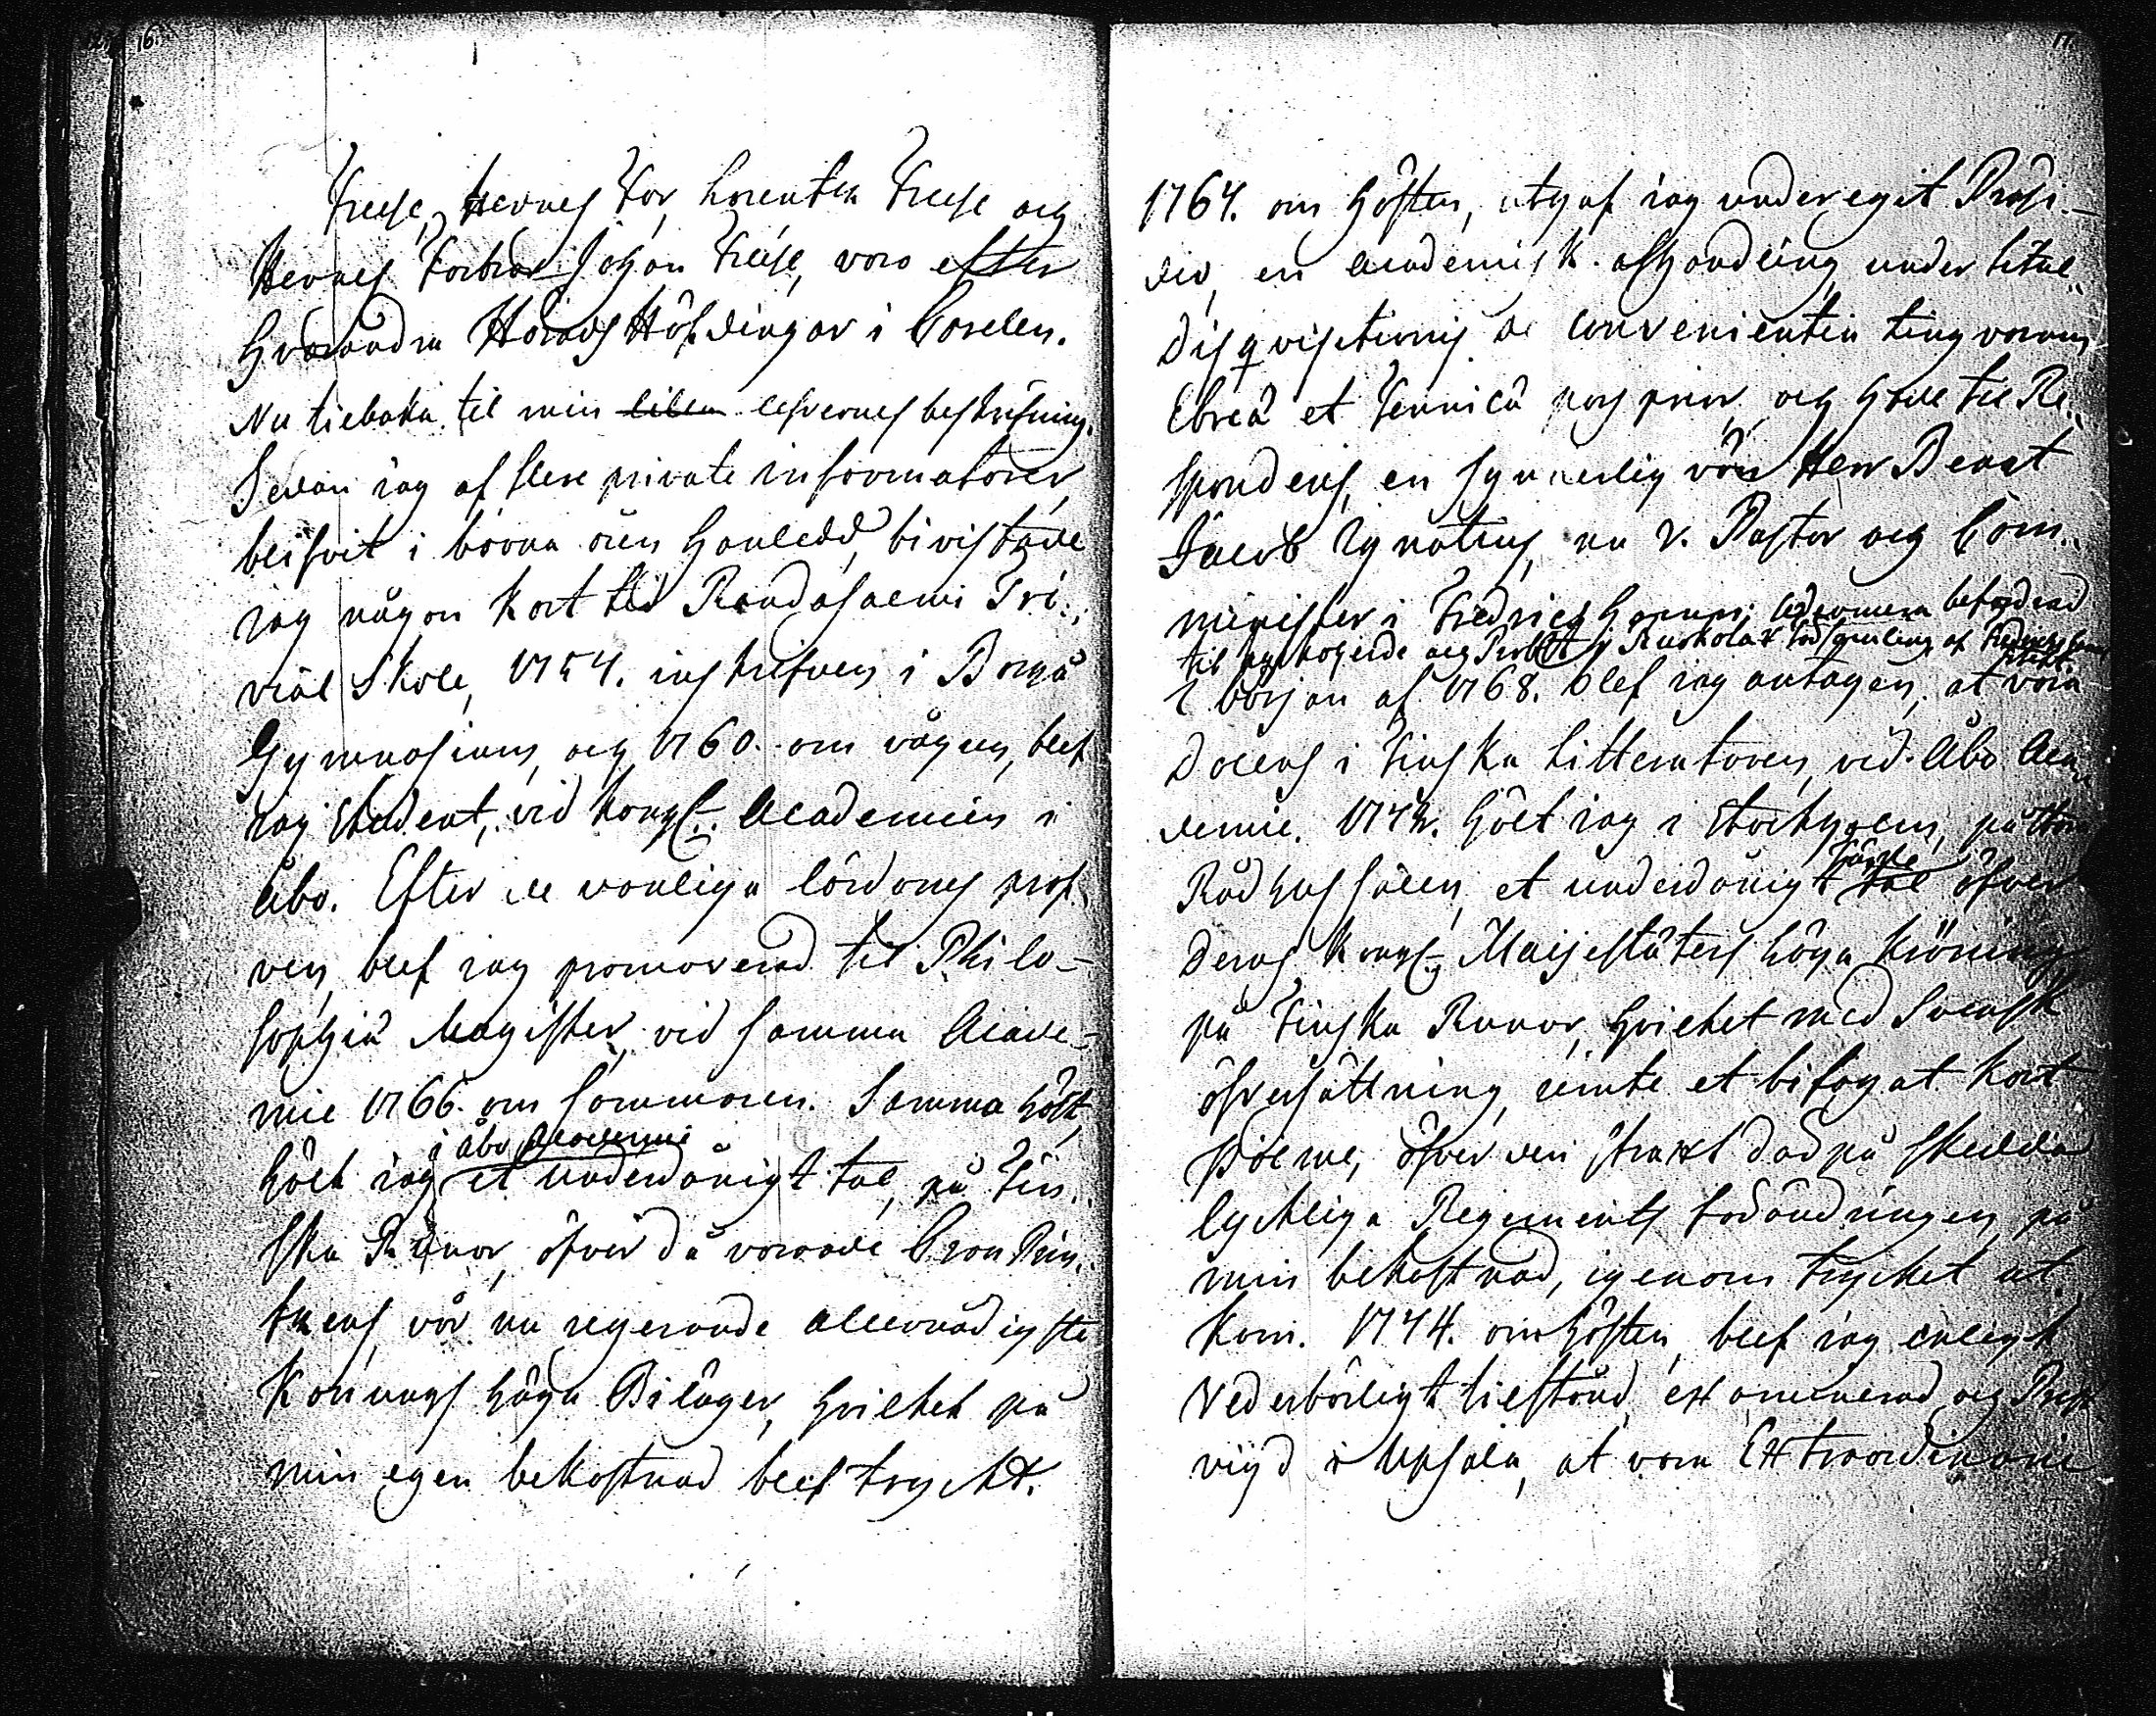 16.
Freese, hennes Far, Lorentz Freese och
Hennes Farbror Johan Freese, voro efter
hvarandra HäradsHöfdingar i Carelen.
Nu tilbaka til min lilla lefvernes beskrifning.
Sedan jag af flere private informatorer
blifvit i barna åren handledd, bivistade
jag någon kort tid Randasalmi Tri-
vial Skole, 1754. inskrifven i Borgå
Gymnasium, och 1760. om vågen, blef
jag Student, vid Kongl. Academien i
Åbo. Efter de vanliga lärdoms prof-
ven, blef jag promoverad til Philo-
sophiä Magister, vid samma Acade-
mie 1766. om sommaren. Samma höst,
i Åbo Academie
hölt jag et underdånigt tal, på Fin-
ska Runor, öfver då varande Cron Prin-
tzens, vår nu regerande allernådigste
Konungs höga Biläger, hvilket på
min egen bekostnad blef tryckt.
17.
1767. om hösten, utgaf jag under eget Präsi-
dio, en academisk afhandling under titul:
Disqvisitionis de convenientia lingvarum
Ebreä et Fennicä pars prior, och hade til Re-
spondens, en synnerlig vän Herr Bengt
Jacob Ignatius, nu v. Pastor och Com-
minister i Fredrics Hamn; sedermera befordrad
til kyrkoherde och Probst i Ruskola församling af Fredrichshamns
District.
I början af 1768. blef jag antagen, at vara
Docens i Finska Litteraturen, vid Åbo Aca-
demie. 1772. hölt jag i Stockholm, på Stora
Rådhus salen, et underdånigt tal öfver
Deras Kongl. Maijestäters höga kröning
på Finska Runor, hvilket med Svensk
öfversättning, jemte et bifogat kort
Poëme, öfver den straxt därpå skedda
lyckliga Regements förändringen, på
min bekostnad, igenom trycket ut-
kom. 1774. om hösten, blef jag enligt
Vederbörligt tilstånd, examinerad och Prest-
vigd i Upsala, at vara Extraordinarie